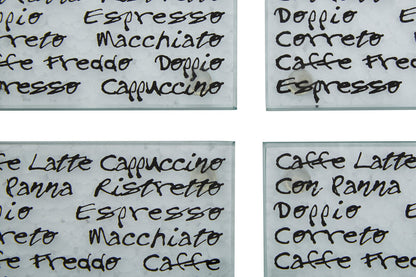 ppio Espresso
rreto Macchiato
ffe Freddo Doppio
presso Cappuccino
Doppio E
Correto M
Caffe Fred
Espresso
fe Latte Cappuccino
Panna Ristretto
pio Espresso
rreto Macchiato
fe Freddo Caffe
Caffe Latte
Con Panna
Doppio E
Correto
Caffe Fred